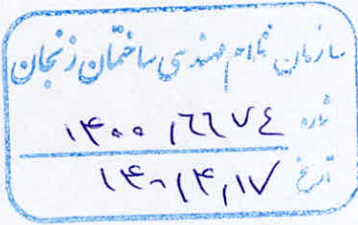 سازمان نظام مهندسی ساختمان زنجان
شماره ۱۴۰۰/٦٦٧٤
تاریخ ۱۴۰۰/۴/۱۷